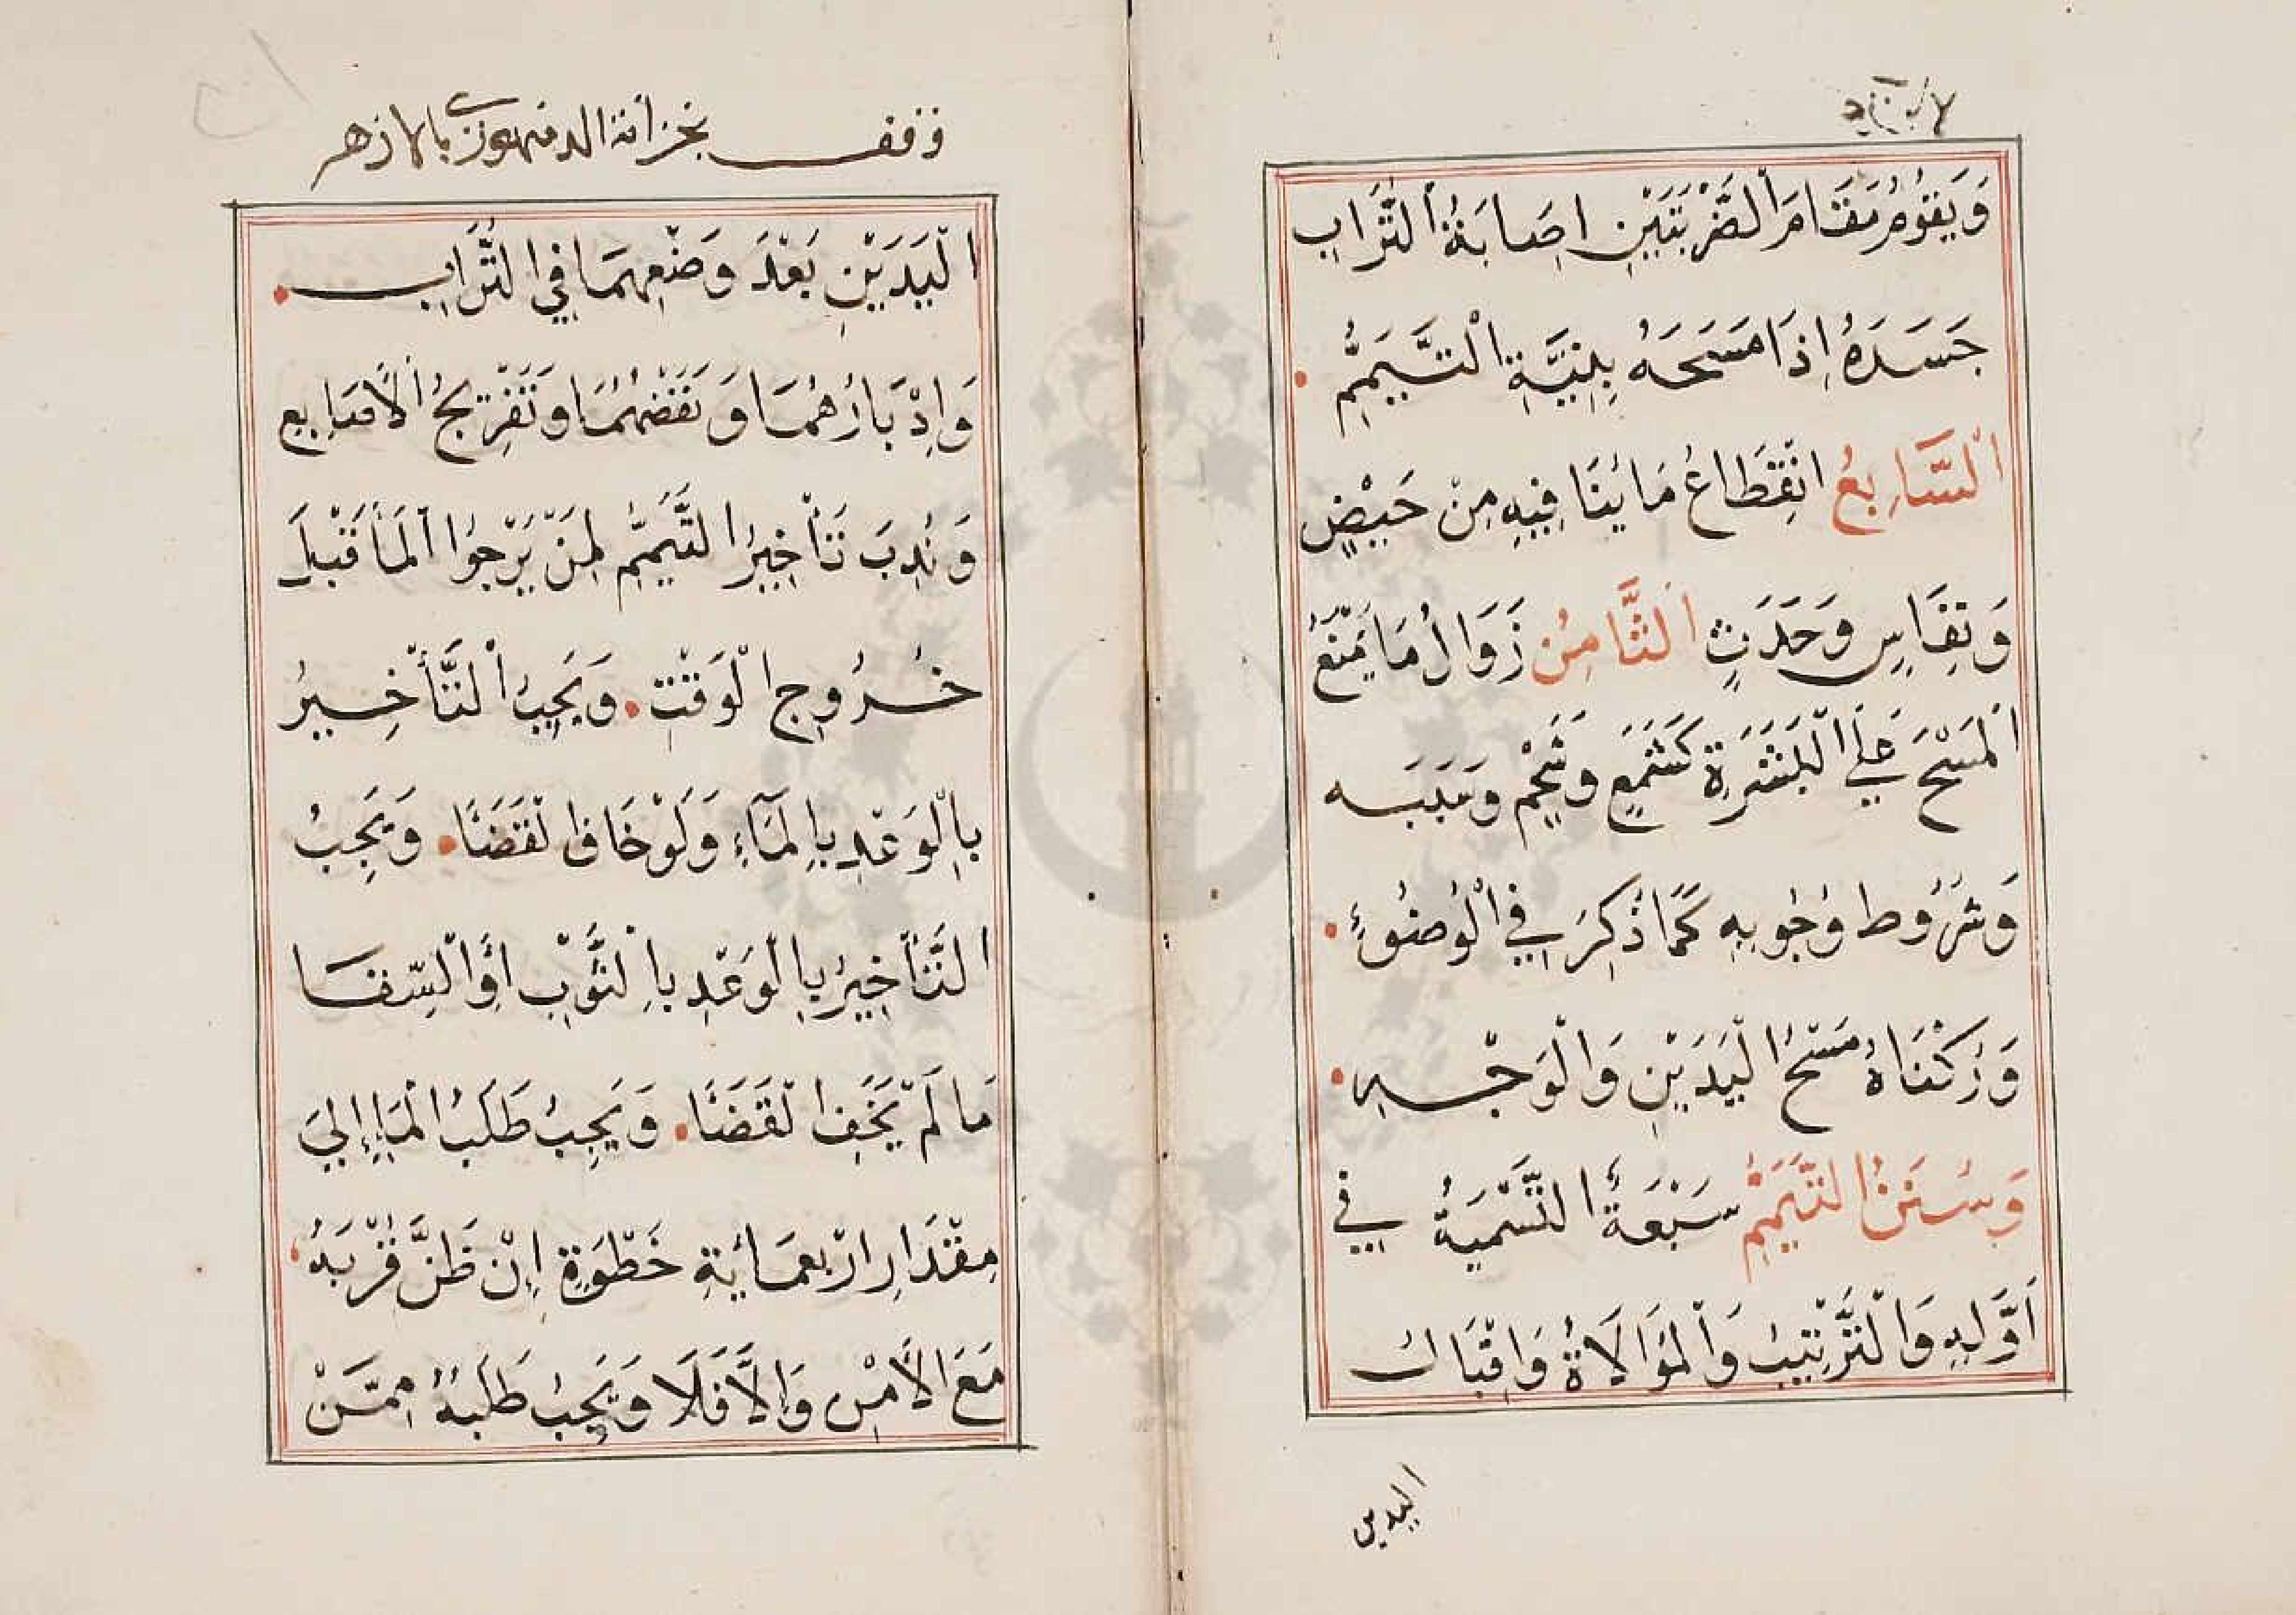 وَيَقُومُ مَقَامَ الضَّرْبَتَيْنِ اِصَابَةُ التُّرَابِ
جَسَدَهُ اِذَا مَسَحَهُ بِنِيَّةِ التَّيَمُّمِ
السَّابِعُ انْقِطَاعُ مَا يُنَافِيهِ مِنْ حَيْضٍ
وَنِفَاسٍ وَحَدَثٍ الثَّامِنُ زَوَالُ مَا يَمْنَعُ
الْمَسْحَ عَلَى الْبَشَرَةِ كَشَمَعٍ وَشَحْمٍ وَسَبَبُه
وَشُرُوط وُجُوبِهِ كَمَا ذُكِرَ فِي الْوُضُوءِ
وَرُكْنَاهُ مَسْحُ الْيَدَيْنِ وَالْوَجْهِ
وَسُنَنُ التَّيَمُّمِ سَبْعَةٌ التَّسْمِيَةُ فِي
اَوَّلِهِ وَالتَّرْتِيبُ وَالْمُوَالَاةُ وَاِقْبَال
اليدين
وقف بخزانة الدمنهوري بالازهر
الْيَدَيْنِ بَعْدَ وَضْعِهِمَا فِي التُّرَابِ
وَاِدْبَارُهُمَا وَنَفْضُهُمَا وَتَفْرِيجُ الْاَصَابِع
وَنُدِبَ تَأْخِيرُ التَّيَمُّمِ لِمَنْ يَرْجُوا الْمَا قَبْلَ
خُرُوجِ الْوَقْتِ وَيَجِبُ التَّأْخِيرُ
بِالْوَعْدِ بِالْمَآءِ وَلَوْ خَافَ الْقَضَا وَيَجِبُ
التَّأْخِيرُ بِالْوَعْدِ بِالثَّوْبِ اَوِ السِّقَا
مَا لَمْ يَخَفِ الْقَضَا وَيَجِبُ طَلَبُ الْمَاءِ اِلَى
مِقْدَارِ ارْبعمَائةِ خَطْوَةٍ اِنْ ظَنَّ قُرْبَهُ
مَعَ الْاَمْنِ وَاِلَّا فَلَا وَيَجِبُ طَلَبُهُ مِمَّنْ